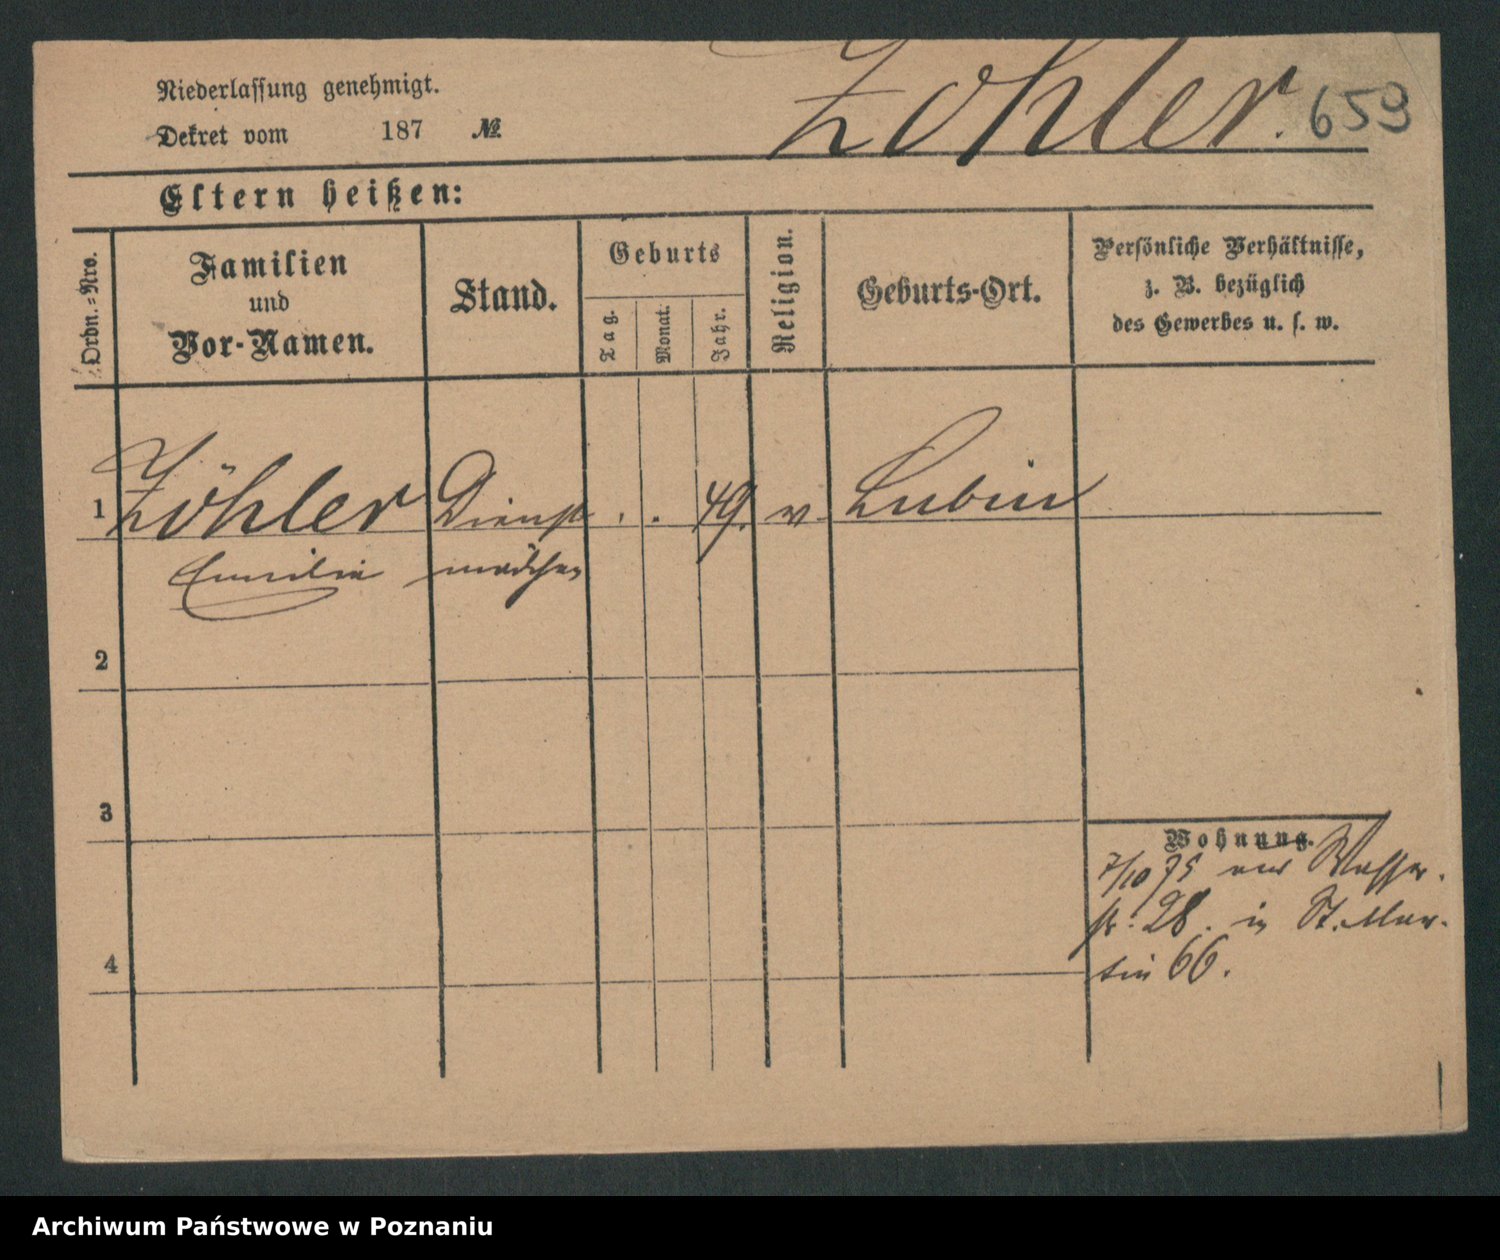 Niederlassung genehmigt.
Dekret vom 187 №
Zöhler. 659
Eltern heißen:
Ordn.=Nro.
Familien
und
Vor-Namen.
Stand.
Geburts
Tag.
Monat.
Jahr.
Religion.
Geburts-Ort.
Persönliche Verhältnisse,
z. B. bezüglich
des Gewerbes u. s. w.
1 Zöhler Dienst . . 49. Lubin
Emilie mädchen
2
3
4
Wohnung.
7/10 75 aus Wasser.
str. 28. in St. Mar-
tin 66.
Archiwum Państwowe w Poznaniu